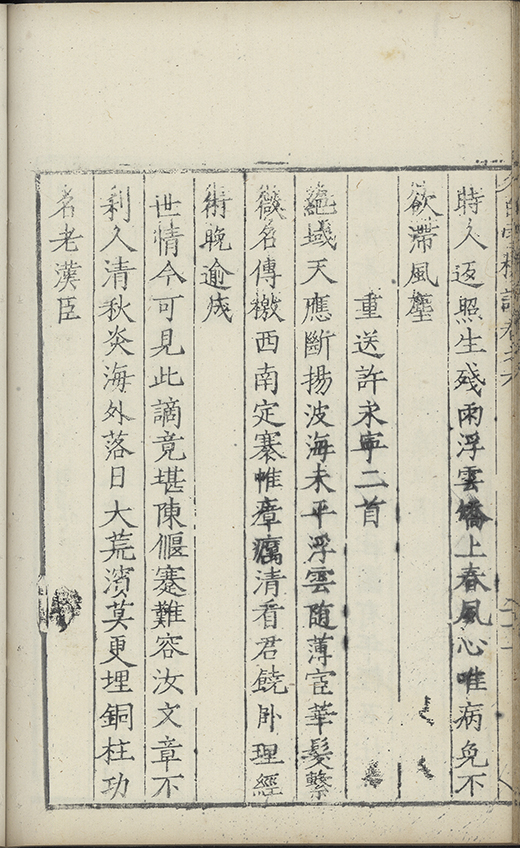 時人返照生殘雨浮雲旛上春風心唯病免不
欲滯風塵
重送許永寧二首
絕域天應斷揚波海未平浮雲隨薄宦華髮繫
微名傳檄西南定褰帷瘴癘清看君饒臥理經
術晚逾成
世情今可見此謫竟堪陳偃蹇難容汝文章不
利人清秋炎海外落日大荒濱莫更埋銅柱功
名老漢臣